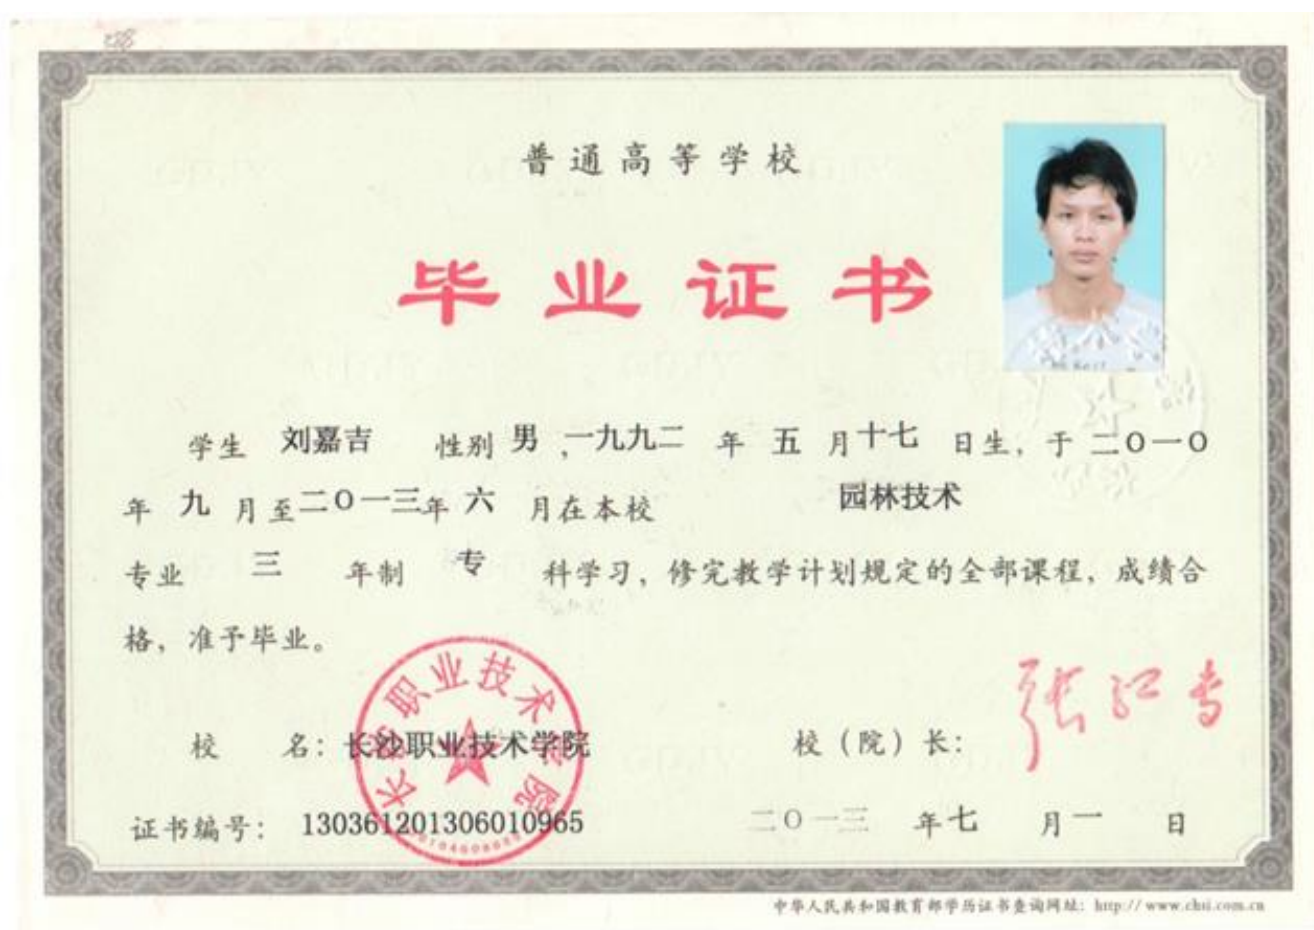 普通高等学校
毕业证书
学生 刘嘉吉 性别 男，一九九二 年 五 月 十七 日生，于 二〇一〇
年 九 月至 二〇一三 年 六 月在本校 园林技术
专业 三 年制 专 科学习，修完教学计划规定的全部课程，成绩合
格，准予毕业。
长沙职业技术学院
校 名：长沙职业技术学院 校（院）长：
证书编号：130361201306010965 二〇一三 年 七 月 一 日
中华人民共和国教育部学历证书查询网址：http://www.chsi.com.cn